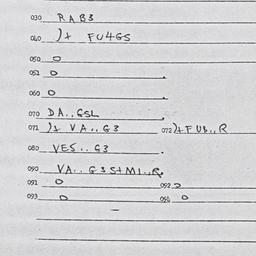 030 RAB3
040 )+ FU4GS
050 0
051 0
060 0
070 DA.,GSL
071 )+ VA..G3 072 )+FUB.,R
080 VES..G3
090 VA..G3S+M1.,R.
091 0 092 0
093 0 094 0